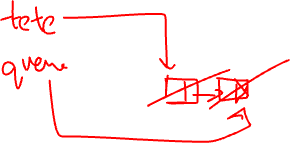 tete
queue